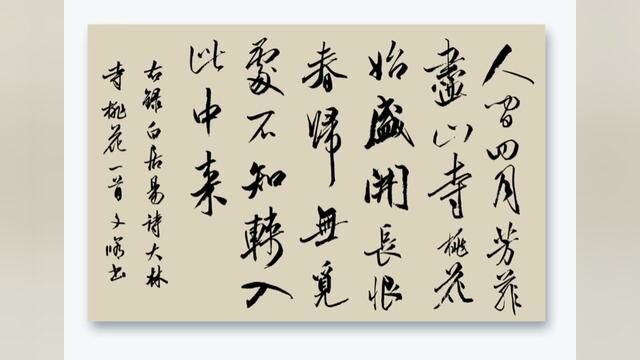 人間四月芳菲
盡山寺桃花
始盛開長恨
春歸無覓
處不知轉入
此中来
右録白居易詩大林
寺桃花一首文书